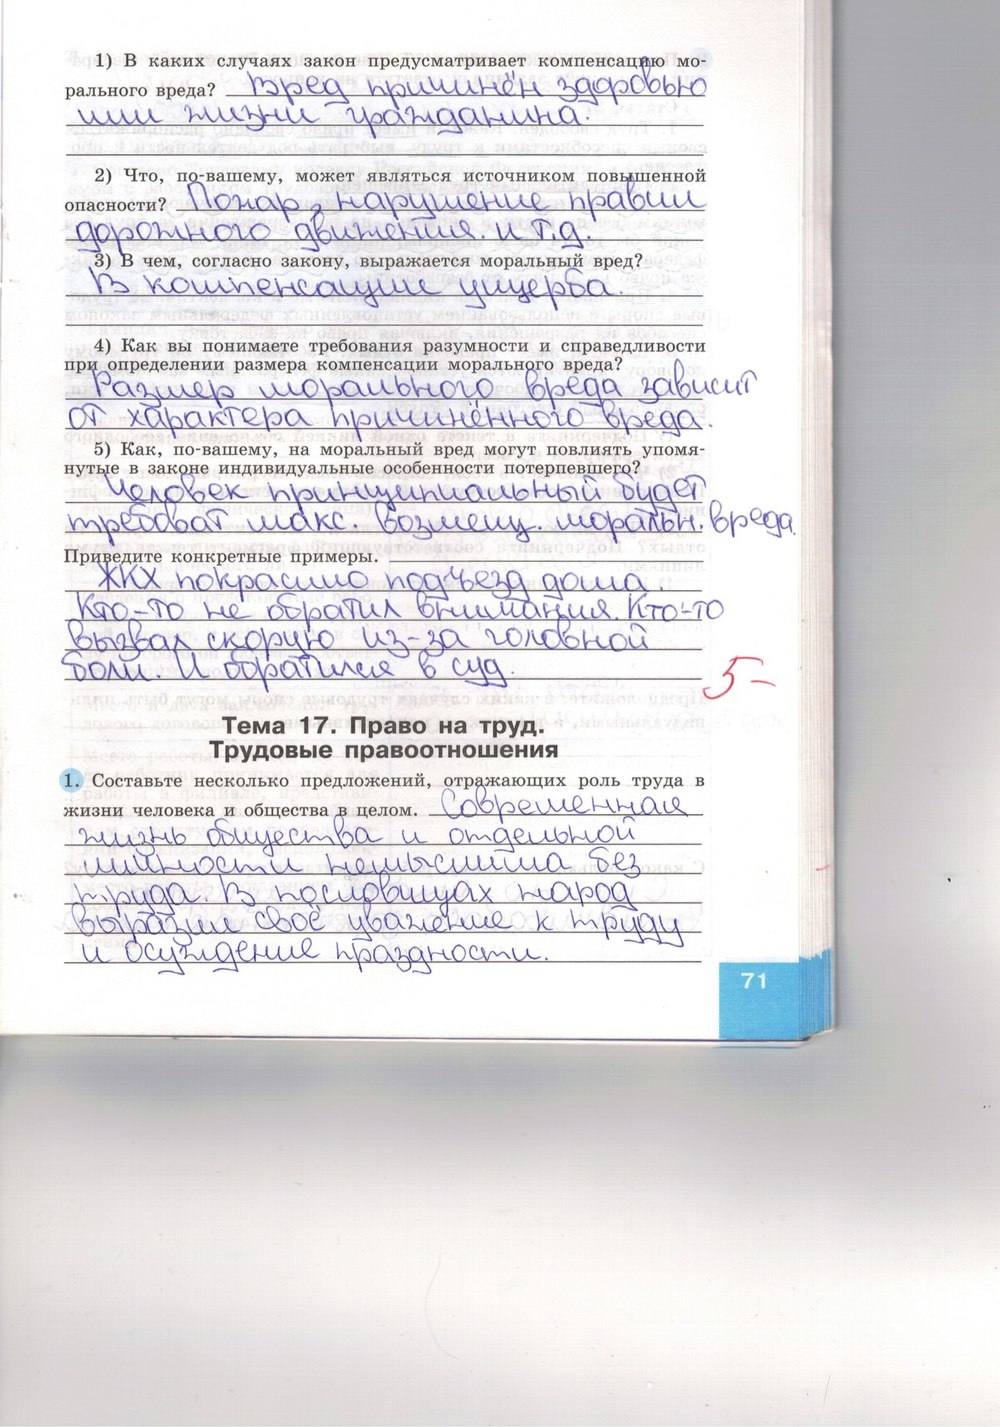 1) В каких случаях закон предусматривает компенсацию мо-
рального вреда? Вред причинён здоровью
или жизни гражданина.
2) Что, по-вашему, может являться источником повышенной
опасности? Пожар, нарушение правил
дорожного движения и т.д.
3) В чем, согласно закону, выражается моральный вред?
В компенсации ущерба.
4) Как вы понимаете требования разумности и справедливости
при определении размера компенсации морального вреда?
Размер морального вреда зависит
от характера причинённого вреда.
5) Как, по-вашему, на моральный вред могут повлиять упомя-
нутые в законе индивидуальные особенности потерпевшего?
Человек принципиальный будет
требоват макс. возмещ. моральн. вреда.
Приведите конкретные примеры.
ЖКХ покрасило подъезд дома.
Кто-то не обратил внимания. Кто-то
вызвал скорую из-за головной
боли. И обратился в суд.
5-
Тема 17. Право на труд.
Трудовые правоотношения
1. Составьте несколько предложений, отражающих роль труда в
жизни человека и общества в целом. Современная
жизнь общества и отдельной
личности немыслима без
труда. В пословицах народ
выразил своё уважение к труду
и осуждение праздности.
71